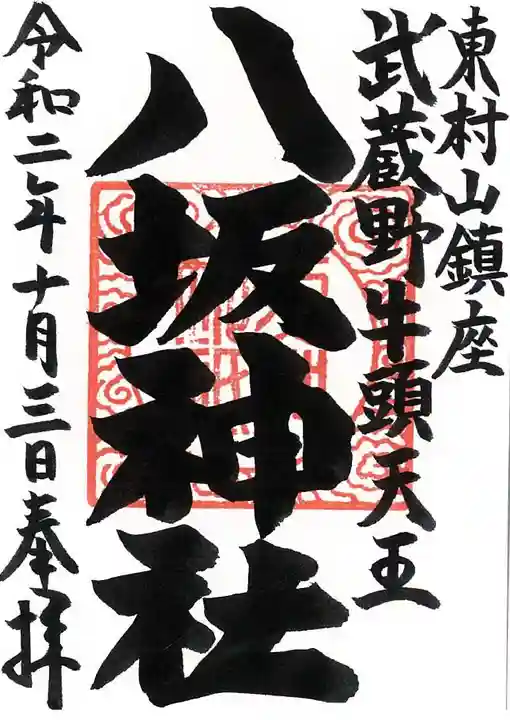 東村山鎮座
武蔵野牛頭天王
八坂神社
令和二年十月三日奉拝